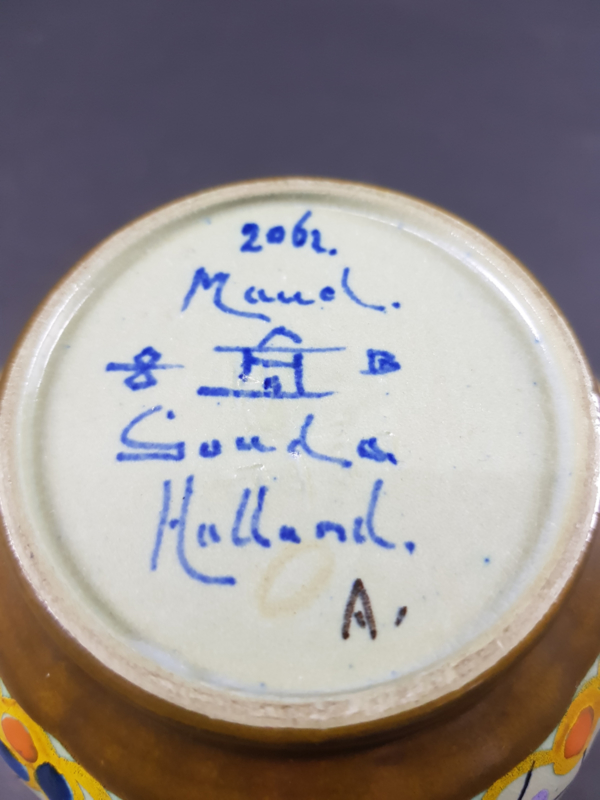 2062.
Maud.
8 B
Gouda
Holland.
A.